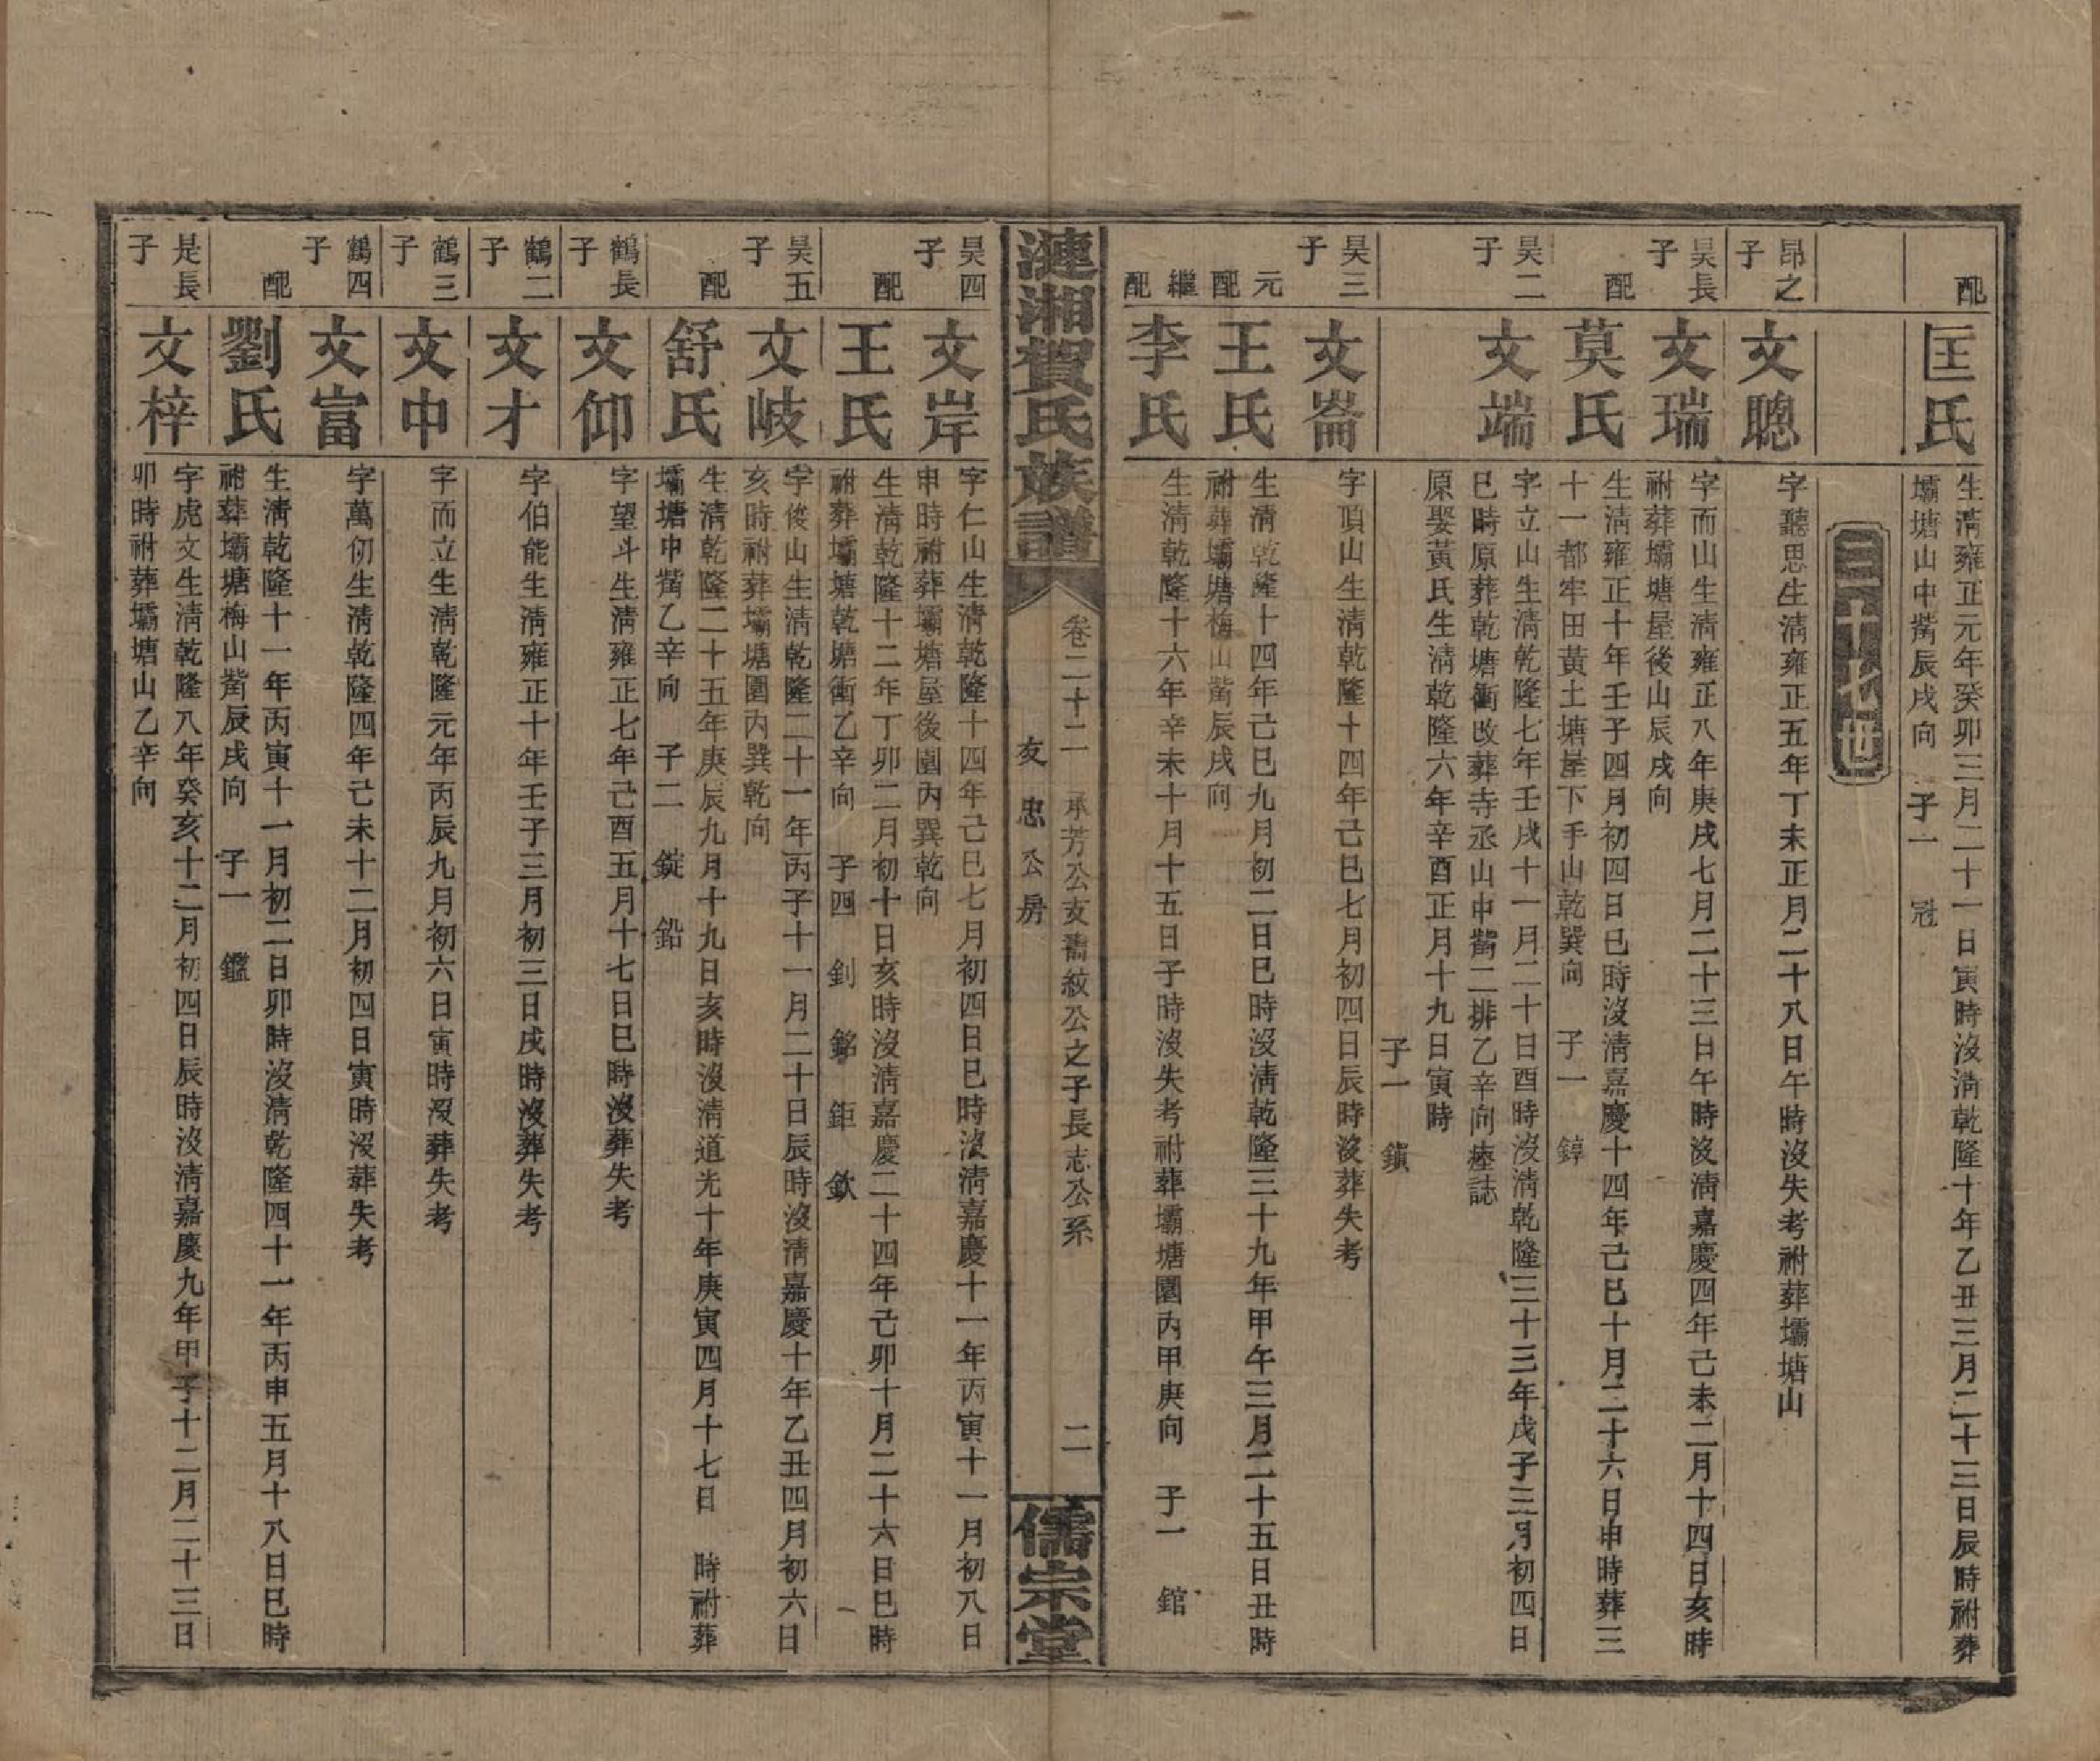 配
匡氏
生清雍正元年癸卯三月二十一日寅時沒清乾隆十年乙丑三月二十三日辰時祔葬
壩塘山中嘴辰戌向　子一　冠
三十七世
昂之子
文聰
字聽思生清雍正五年丁未正月二十八日午時沒失考祔葬壩塘山
昊長子
文瑞
字而山生清雍正八年庚戌七月二十三日午時沒清嘉慶四年己未二月十四日亥時
祔葬壩塘屋後山辰戌向
配
莫氏
生清雍正十年壬子四月初四日巳時沒清嘉慶十四年己巳十月二十六日申時葬三
十一都牢田黃土塘屋下手山乾巽向　子一　錞
昊二子
文端
字立山生清乾隆七年壬戌十一月二十日酉時沒清乾隆三十三年戊子三月初四日
巳時原葬乾塘衝改葬寺丞山中嘴二排乙辛向墪誌
原娶黃氏生清乾隆六年辛酉正月十九日寅時
子一　鎭
昊三子
文崙
字頂山生清乾隆十四年己巳七月初四日辰時沒葬失考
元配
王氏
生清乾隆十四年己巳九月初二日巳時沒清乾隆三十九年甲午三月二十五日丑時
祔葬壩塘梅山嘴辰戌向
繼配
李氏
生清乾隆十六年辛未十月十五日子時沒失考祔葬壩塘園內甲庚向　子一　錧
漣湘賀氏族譜
卷二十二　承芳公支喬紋公之子長志公系
友忠公房
二
儒宗堂
昊四子
文岸
字仁山生清乾隆十四年己巳七月初四日巳時沒清嘉慶十一年丙寅十一月初八日
申時祔葬壩塘屋後園內巽乾向
配
王氏
生清乾隆十二年丁卯二月初十日亥時沒清嘉慶二十四年己卯十月二十六日巳時
祔葬壩塘乾塘衝乙辛向　子四　釗　銘　鉅　欽
昊五子
文岐
字俊山生清乾隆二十一年丙子十一月二十日辰時沒清嘉慶十年乙丑四月初六日
亥時祔葬壩塘園內巽乾向
配
舒氏
生清乾隆二十五年庚辰九月十九日亥時沒清道光十年庚寅四月十七日　時祔葬
壩塘中嘴乙辛向　子二　錠　鉛
鶴長子
文仰
字望斗生清雍正七年己酉五月十七日巳時沒葬失考
鶴二子
文才
字伯能生清雍正十年壬子三月初三日戌時沒葬失考
鶴三子
文中
字而立生清乾隆元年丙辰九月初六日寅時沒葬失考
鶴四子
文富
字萬仞生清乾隆四年己未十二月初四日寅時沒葬失考
配
劉氏
生清乾隆十一年丙寅十一月初二日卯時沒清乾隆四十一年丙申五月十八日巳時
祔葬壩塘梅山嘴辰戌向　子一　鑑
是長子
文梓
字虎文生清乾隆八年癸亥十二月初四日辰時沒清嘉慶九年甲子十二月二十三日
卯時祔葬壩塘山乙辛向